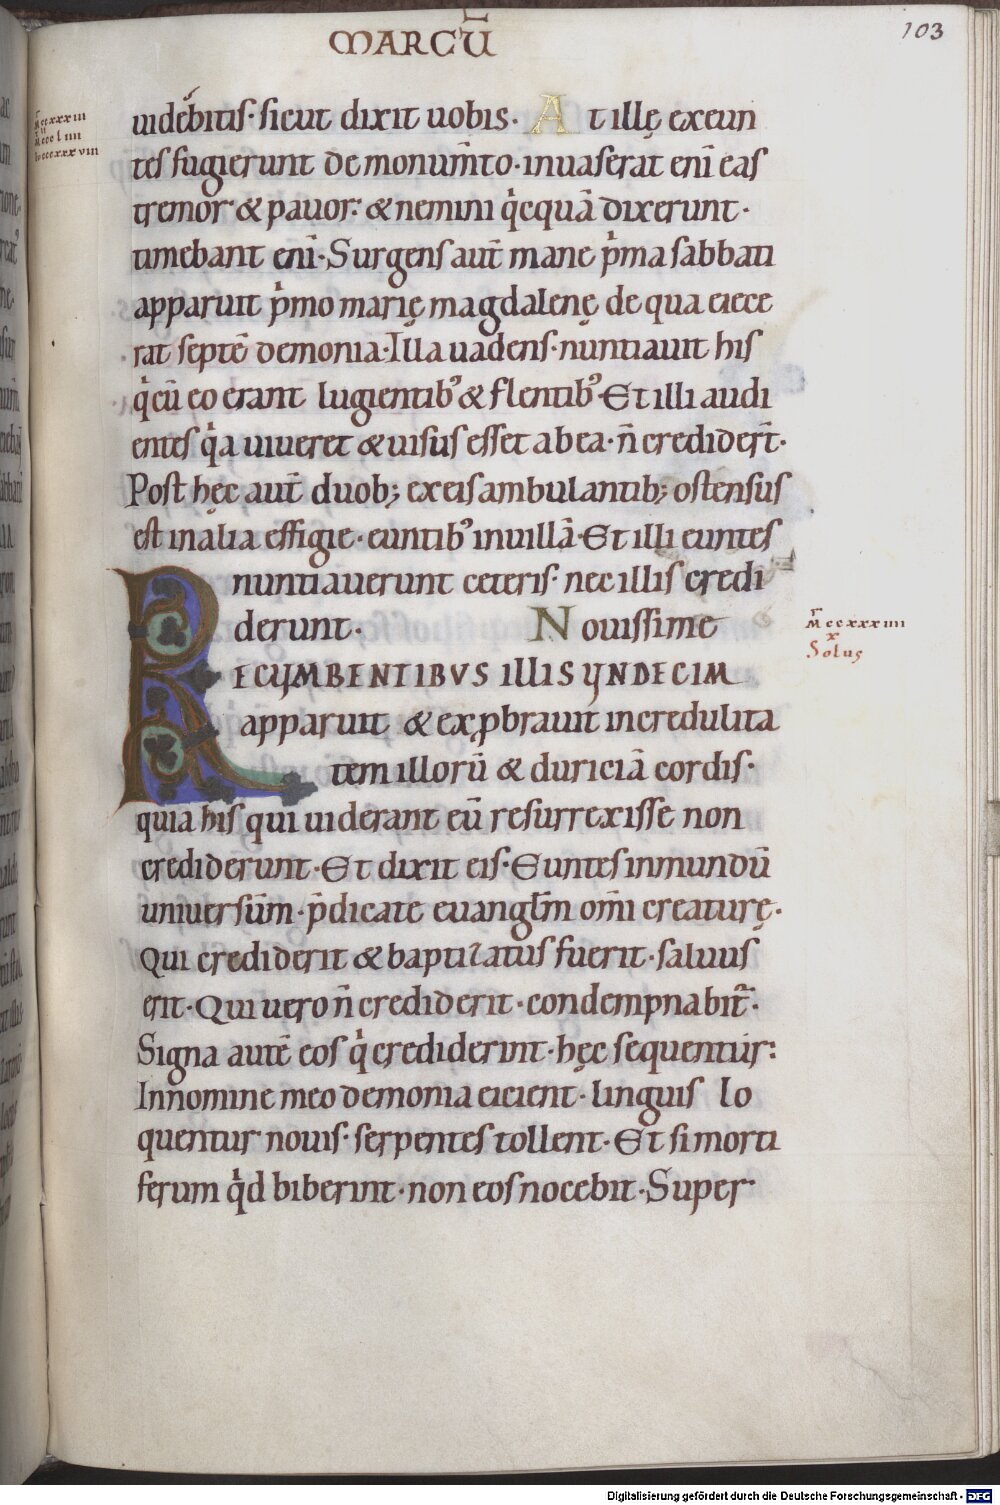 MARCU̅
103
uidebitis· sicut dixit uobis· At illę exeun
tes fugierunt de monum̅to· inuaserat eni̅ eas
tremor· & pauor· & nemini qͥcqua̅ dixerunt·
timebant eni̅· Surgens aut̅ mane pͥma sabbati
apparuit pͥmo marię magdalenę de qua eiece
rat septe̅ demonia· Illa uadens· nuntiauit his
qͥ cu̅ eo erant lugientibꝰ & flentibꝰ Et illi audi
entes qͥa uiueret & uisus esset ab ea· n̅ credider̅t·
Post hęc aut̅ duob; ex eis ambulantib; ostensus
est in alia effigie· euntibꝰ in uilla̅· Et illi euntes
nuntiauerunt ceteris· nec illis credi
derunt· Nouissime
RECUMBENTIBVS ILLIS UNDECIM
apparuit & exꝓbrauit incredulita
tem illoru̅ & duricia̅ cordis·
quia his qui uiderant eu̅ resurrexisse non
crediderunt· Et dixit eis· Euntes in mundu̅
uniuersu̅m· p̅dicate euangl̅m om̅i creaturę·
Qui crediderit & baptizatus fuerit· saluus
erit· Qui uero n̅ crediderit· condempnabit̅·
Signa aute̅ eos qͥ crediderint· hęc sequentur:
In nomine meo demonia eicient· linguis lo
quentur nouis· serpentes tollent· Et si morti
ferum qͥd biberint· non eos nocebit· Super
M ccxxxiiii
x
Solus
Digitalisierung gefördert durch die Deutsche Forschungsgemeinschaft - DFG